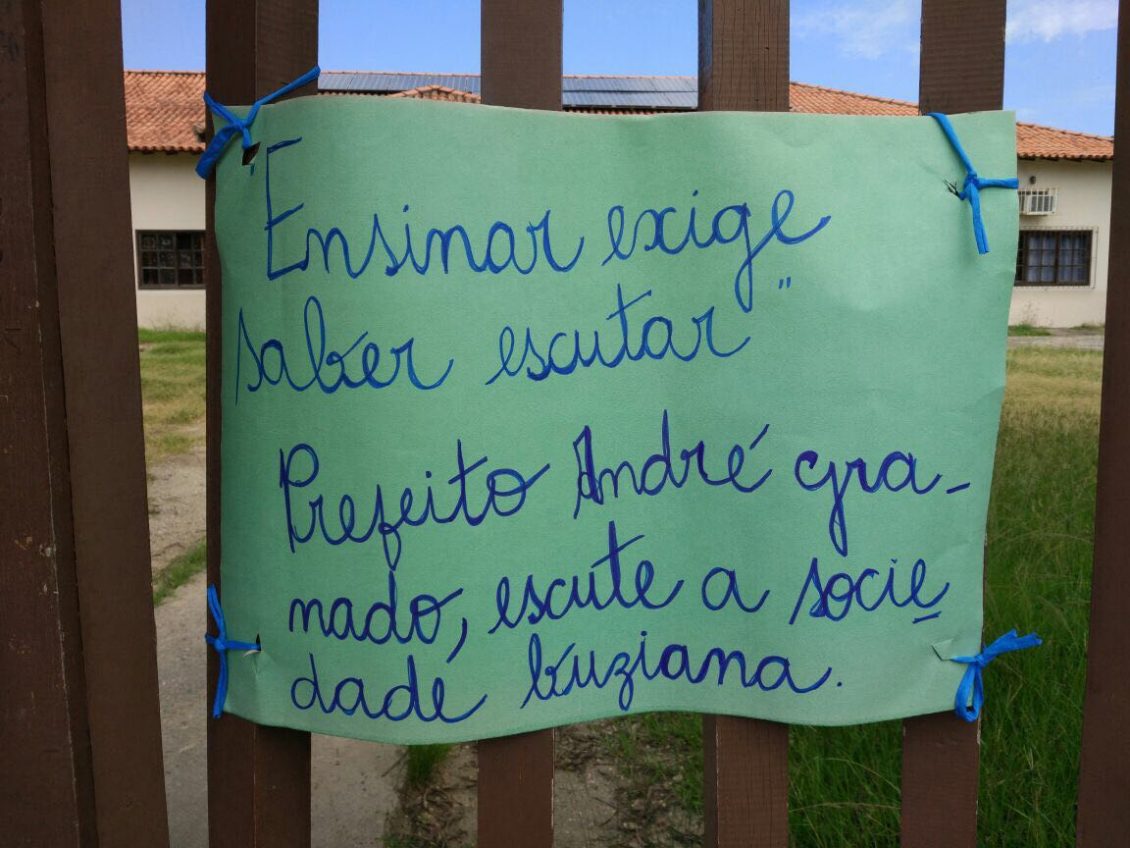 "Ensinar exige
saber escutar"
Prefeito André gra-
nado, escute a socie
dade buziana.